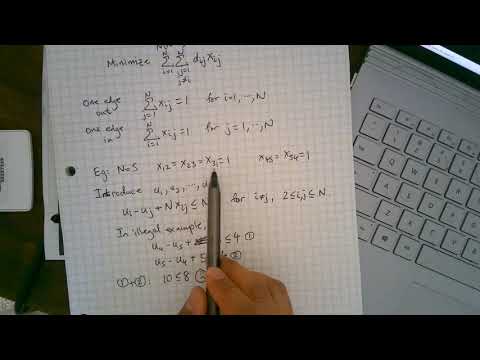 Minimize Σ Σ dij xij
i=1 j=1
j≠i
One edge out Σ xij = 1 for i=1, ..., N
j=1
One edge in Σ xij = 1 for j=1, ..., N
i=1
Eg: N=5 x12 = x23 = x31 = 1 x45 = x54 = 1
Introduce u1, u2, ..., u
ui - uj + N xij ≤ N for i≠j, 2≤i,j≤N.
In illegal example,
u4 - u5 + ≤ 4 ①
u5 - u4 + 5 ②
①+②: 10 ≤ 8